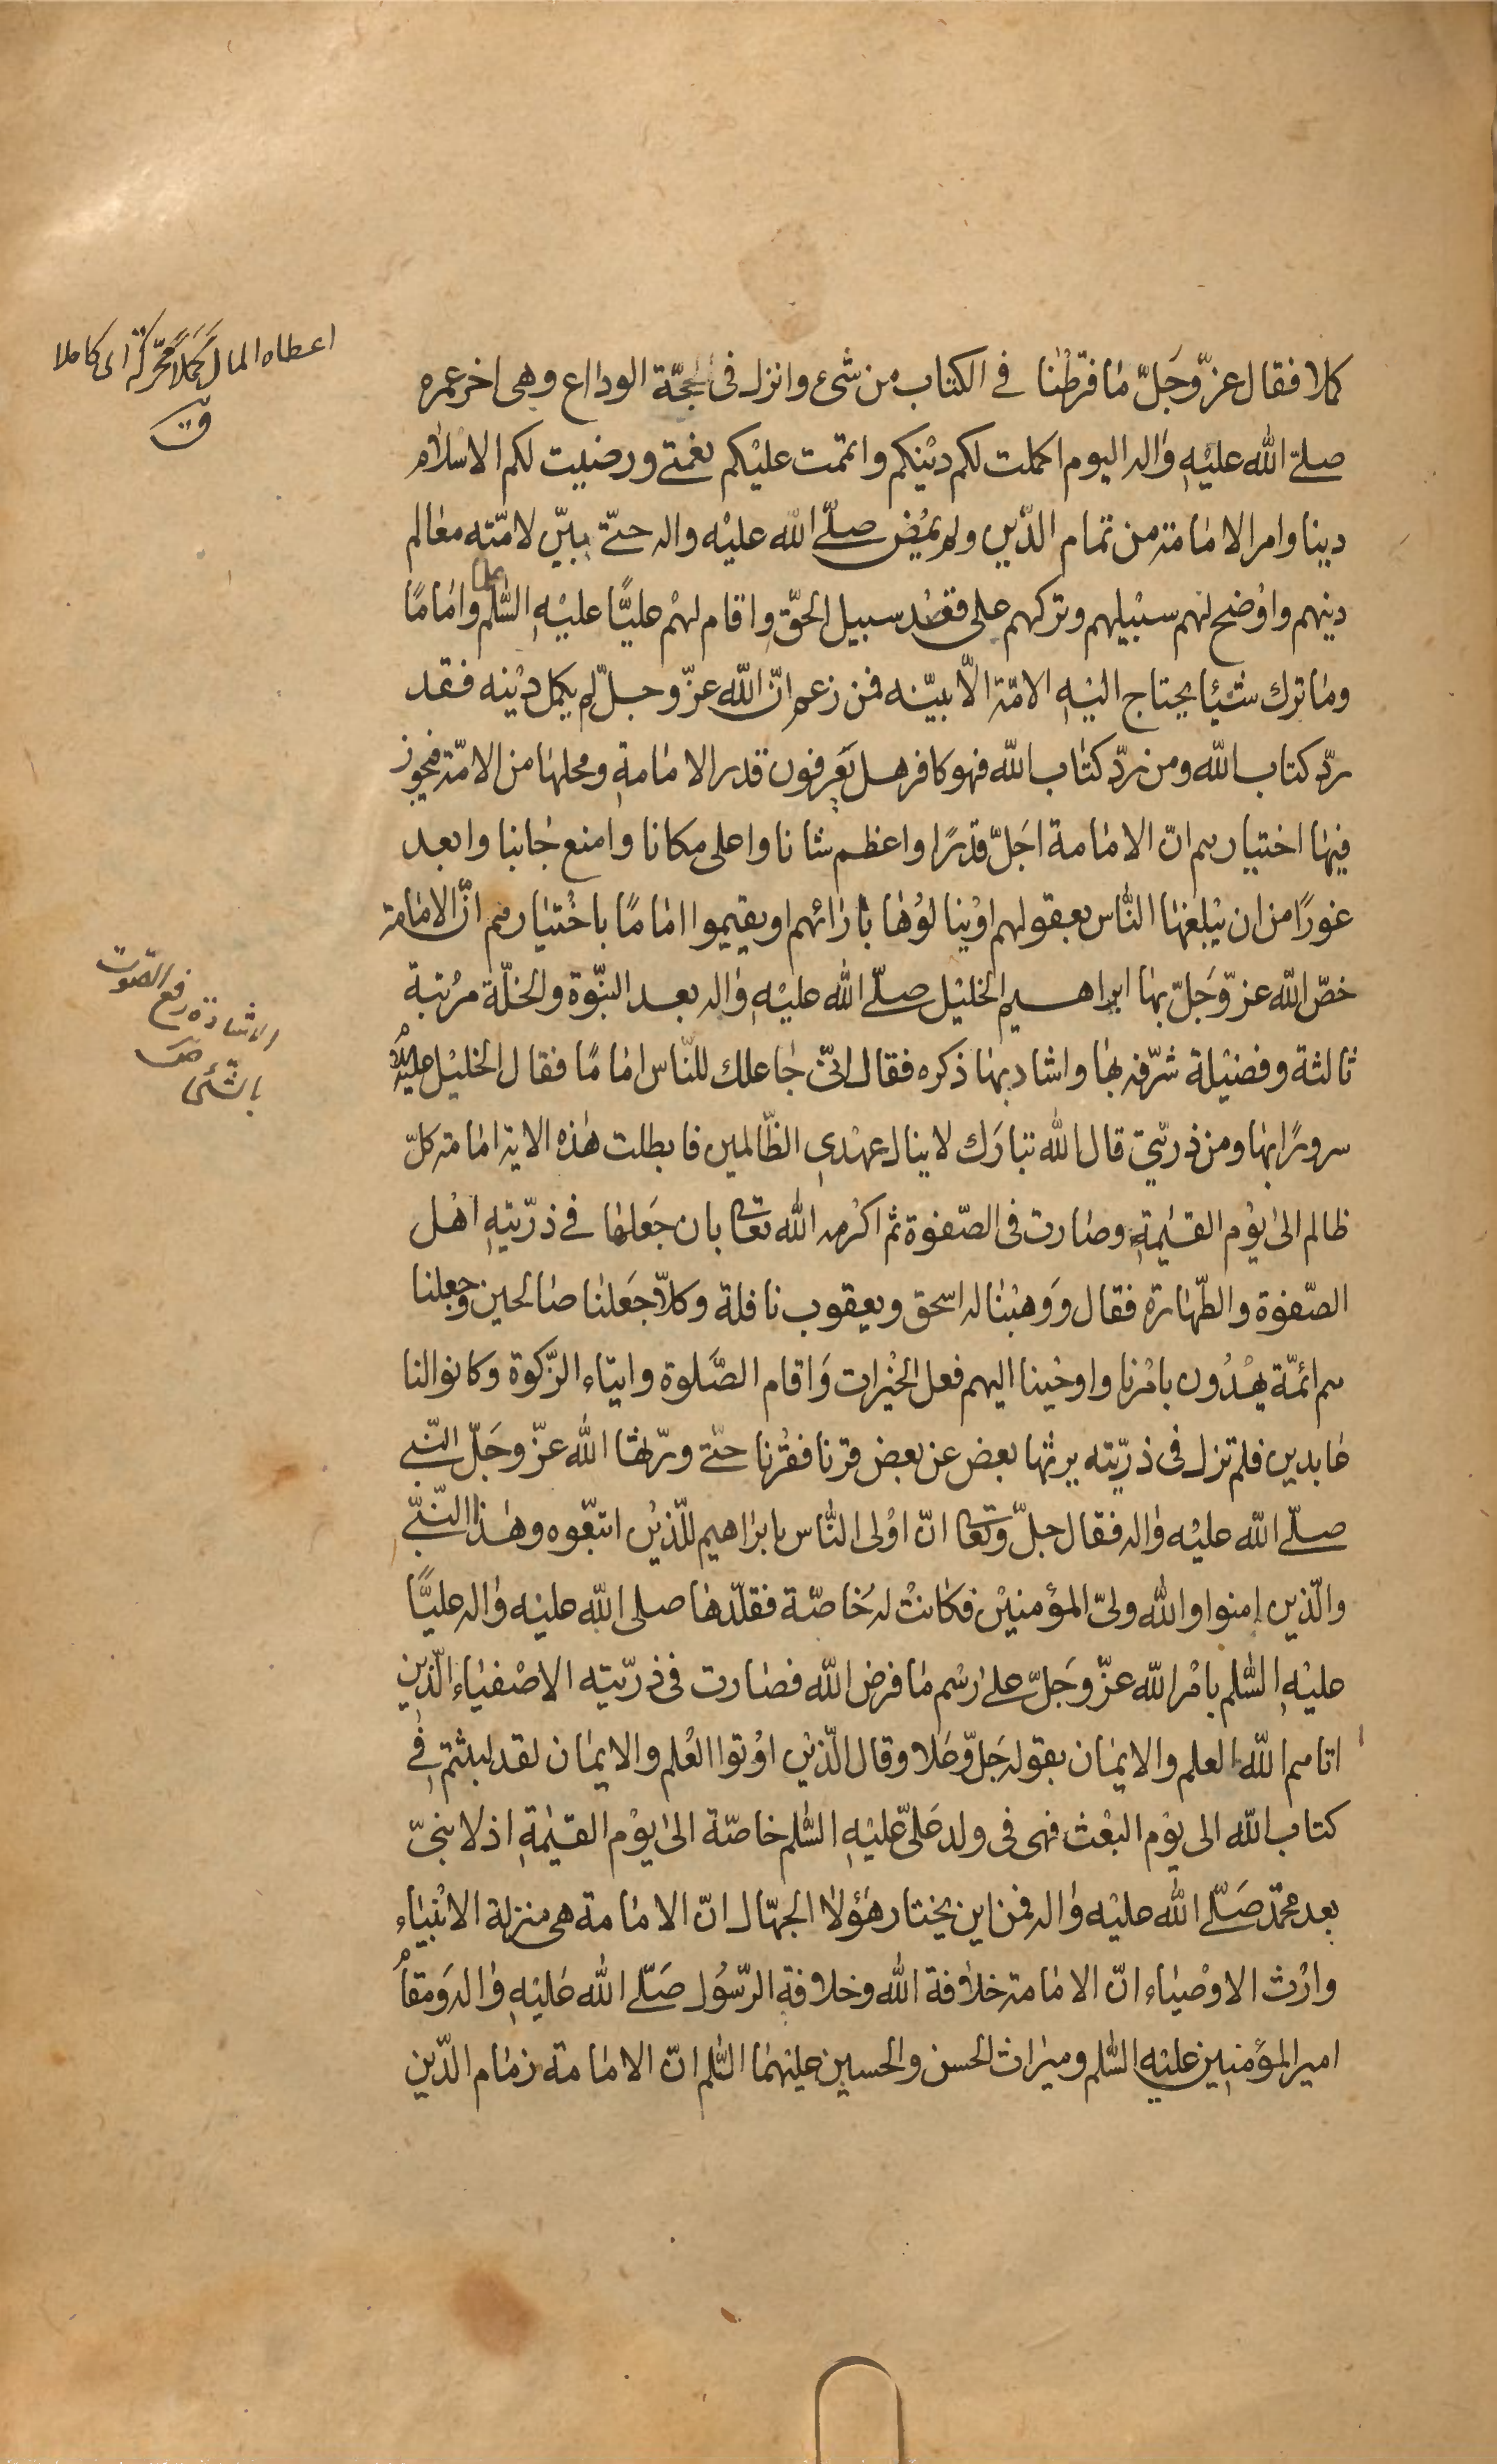 كملا فقال عزّ وجَلّ مٰا فرّطْنٰا فے الكتاب من شیء وانزل فی حجّة الوداع وهی اخر عمره
صلے اللّه عليْهِ وٰاله اليوم اكملت لكم ديْنكم واتممت عليْكم نعْمتے ورضيت لكم الاسْلام
دينا وامر الامٰامة من تمام الدّين ولم يمْض صلّے اللّه عليْه واله حتّے بيّن لامّته معٰالم
دينهم واوْضح لهم سبْيلهم وتركهم على قصْد سبيل الحقّ واقام لهمْ عليًّا عليْهِ السّٰلم علما وامٰامًا
ومٰا ترك شيْئا يحتاج اليْهِ الامّة الّا بيّنه فمن زعم انّ اللّه عزّ وجلّ لم يكمل ديْنه فقد
ردّ كتاب اللّه ومن ردّ كتٰاب اللّه فهو كافر هل يَعرفون قدر الامٰامةِ ومحلهٰا من الامّة فيجوز
فيهٰا اختيارهم انّ الامٰامة اجَلّ قدْرًا واعظم شانا واعلى مكانا وامنع جٰانبا وابعد
غورًا من ان يبْلغهٰا النّٰاس بعقولهم اوْ ينالوُهٰا بٰارٰائهم او يقيموا امٰامًا باخْتيٰارهم انّ الامٰامة
خصّ اللّه عزّ وَجَلّ بهٰا ابراهيم الخليْل صلّے اللّه عليْهِ وٰاله بعد النبّوة والخلّة مرْتبة
ثالثة وفضيْلة شرّفه بهٰا واشاد بهٰا ذكره فقال انّی جٰاعلك للنّاس امٰامًا فقال الخليْل عليْه
سرورًا بهٰا ومن ذريّتی قال اللّه تبٰارَك لا ينال عهْدی الظّالمين فابطلت هٰذه الاية امٰامة كلّ
ظالم الىٰ يوْم القيٰمةِ وصٰارت فی الصّفوْة ثم اكرْمه اللّه تعالى بان جَعلهٰا فے ذرّيتهِ اهْل
الصّفوْة والطّهٰارة فقال ووَهبْنا له اسحق ويعقوب نافلة وكلّا جَعلنٰا صٰالحين وجعلنا
هم ائمّة يهْدُون بامْرنا واوحيْنا اليهم فعل الخيْرات وَاقام الصَّلوة وايتاء الزّكوة وكانوا لنا
عٰابدين فلم تزل فی ذرّيّته يرثها بعض عن بعض قرنا فقرْنا حتّے ورّثهٰا اللّه عزّ وجَلّ النّبے
صلّے اللّه عليْه وٰاله فقال جلّ وتعالى انّ اوْلى النّاس بابرٰاهيم للّذيْن اتبّعوه وهٰذا النّبّے
والّذين امنوا واللّه ولیّ المؤمنيْن فكانتْ له خٰاصّة فقلّدهٰا صلى اللّه عليْه وٰاله عليًّا
عليْهِ السّٰلم بامْر اللّه عزّ وجَلّ علےٰ رسْم مٰا فرض اللّه فصٰارت فی ذرّيّته الاصْفيٰاء الّذين
اتاهم اللّه العلم والايمٰان بقوله جَلّ وعَلا وقال الّذيْن اوْتوا العْلم والايمٰان لقد لبثتم فے
كتاب اللّه الى يوْم البعْث فهی فی ولد عَلیّ عليْهِ السّٰلم خاصّة الىٰ يوْم القيٰمةِ اذ لا نبیّ
بعد محمّد صَلّے اللّه عليْه وٰاله فمن اين يختار هٰؤلاٰ الجهّال انّ الامٰامة هی منزلة الانبْيٰاء
وارْث الاوْصيٰاء انّ الامٰامة خلاٰفة اللّه وخلافة الرّسُول صَلّے اللّه عَليْهِ وٰاله وَمقام
امير المؤمنين عليْهِ السّٰلم وميرٰاث الحسن والحسين عليْهمٰا السّٰلم انّ الامٰامة زمٰام الدّين
اعطاه المال كَمَلًا محرّكة ای كاملا
ق
الاشادة رفع الصوت
بالشئ ص